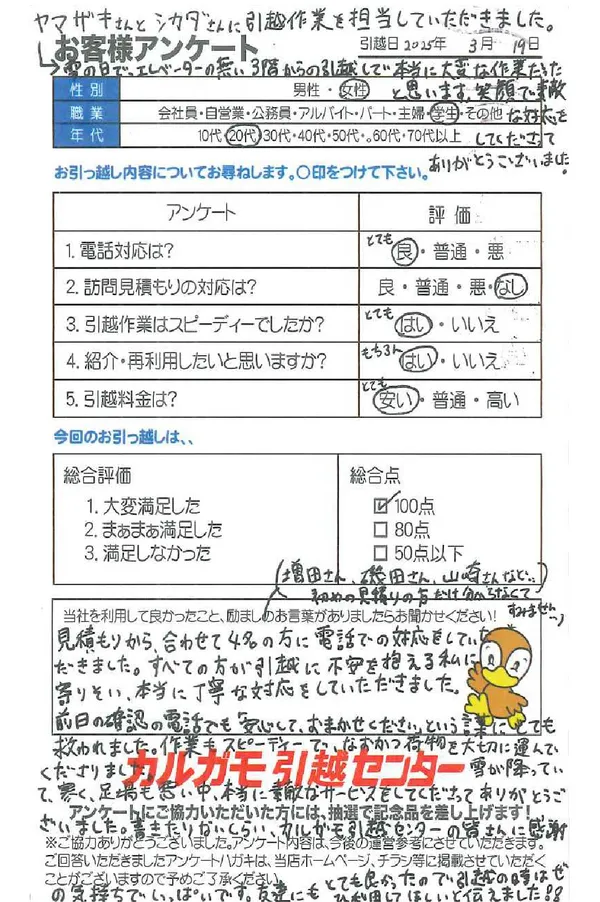 ヤマザキさんとシカダさんに引越作業を担当していただきました。
お客様アンケート
引越日 2025年 3月 19日
→雪の日で、エレベーターの無い3階からの引越しで本当に大変な作業だった
と思います。笑顔で素敵
な対応を
してくださって
ありがとうございました。
性別 男性・女性
職業 会社員・自営業・公務員・アルバイト・パート・主婦・学生・その他
年代 10代・20代・30代・40代・50代・60代・70代以上
お引っ越し内容についてお尋ねします。〇印をつけて下さい。
アンケート 評価
1. 電話対応は? とても 良・普通・悪
2. 訪問見積もりの対応は? 良・普通・悪・なし
3. 引越作業はスピーディーでしたか? とても はい・いいえ
4. 紹介・再利用したいと思いますか? もちろん はい・いいえ
5. 引越料金は? とても 安い・普通・高い
今回のお引っ越しは、、
総合評価
1. 大変満足した
2. まぁまぁ満足した
3. 満足しなかった
総合点
☑ 100点
□ 80点
□ 50点以下
(増田さん、磯田さん、山崎さんなど...
初めの見積りの方だけ分からなくて
すみません...)
当社を利用して良かったこと、励ましのお言葉がありましたらお聞かせください!
見積もりから、合わせて4名の方に電話での対応をしていた
だきました。すべての方が引越に不安を抱える私に
寄りそい、本当に丁寧な対応をしていただきました。
前日の確認の電話でも「安心して、おまかせください」という言葉にとても
救われました。作業もスピーディーで、なおかつ荷物を大切に運んで
くださりました。
カルガモ引越センター
雪が降ってい
て、寒く、足場も悪い中、本当に素敵なサービスをしてくださってありがとうござ
アンケートにご協力いただいた方には、抽選で記念品を差し上げます!
いました。書ききれないくらい、カルガモ引越センターの皆さんに感謝
※ご協力ありがとうございました。アンケート内容は、今後の運営参考にさせていただきます。
ご回答いただきましたアンケートハガキは、当店ホームページ、チラシ等に掲載させていただく
ことがございますので予めご了承ください。
の気持ちでいっぱいです。友達にもとても良かったので引越の時はぜ
ひ利用してほしいと伝えました!!